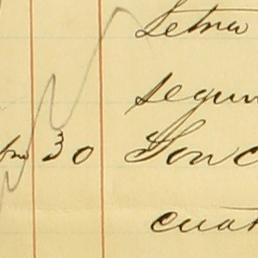 Letra
segun
30 Son c
cuat